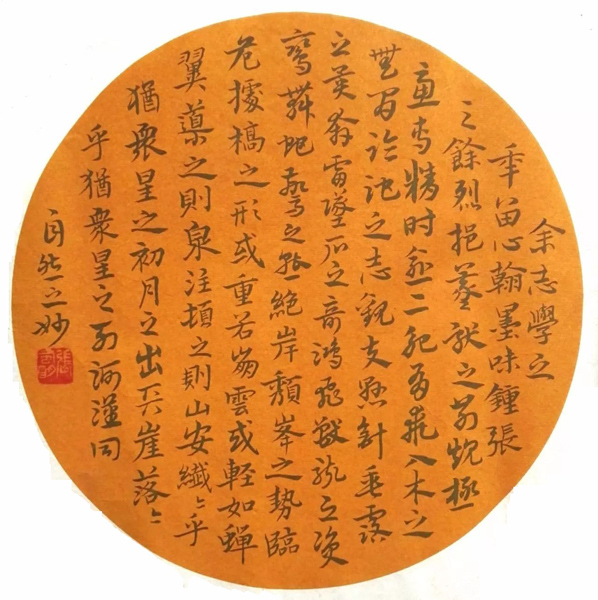 余志學之
年留心翰墨味鍾張
之餘烈挹羲獻之前規極
慮專精時逾二紀有乖入木之
無間臨池之志觀夫懸針垂露
之異奔雷墜石之奇鴻飛獸駭之資
鸞舞蛇驚之態絕岸頹峯之勢臨
危據槁之形或重若崩雲或輕如蟬
翼導之則泉注頓之則山安纖〻乎
猶眾星之初月之出天崖落〻
乎猶眾星之列河漢同
自然之妙